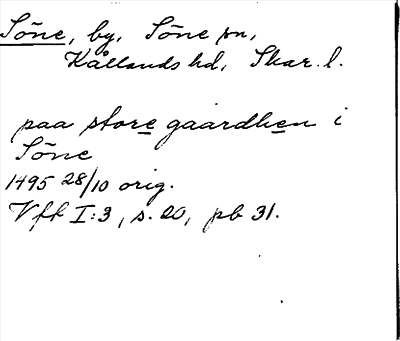 Sōne, by, Sōne sn,
Kållands hd, Skar. l.
paa store gaardhen i
Sōne
1495 28/10 orig.
Vfft I:3, s. 20, pb 31.